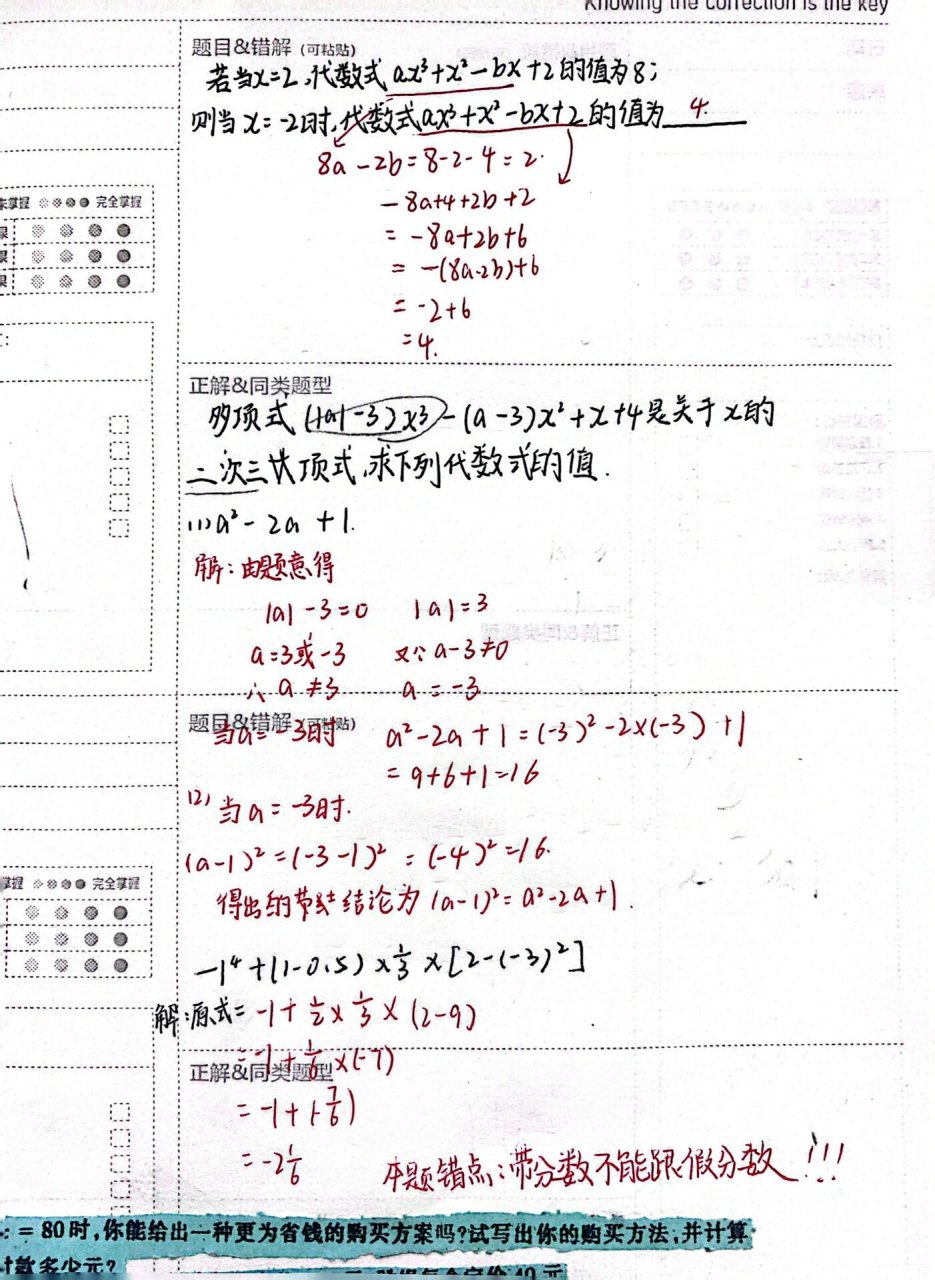 Knowing the correction is the key
题目&错解 (可粘贴)
若当x=2,代数式ax³+x²-bx+2的值为8;
则当x=-2时,代数式ax³+x²-bx+2的值为 4.
8a-2b=8-2-4=2.
-8a+4+2b+2
=-8a+2b+6
=-(8a-2b)+6
=-2+6
=4.
未掌握 完全掌握
正解&同类题型
多项式(|a|-3)x³-(a-3)x²+x+4是关于x的
二次三项式,求下列代数式的值.
(1)a²-2a+1.
解:由题意得
|a|-3=0 |a|=3
a=3或-3 又∵a-3≠0
∴a≠3 a=-3
题目&错解 (可粘贴)
当a=-3时 a²-2a+1=(-3)²-2×(-3)+1
=9+6+1=16
(2)当a=-3时.
(a-1)²=(-3-1)²=(-4)²=16.
掌握 完全掌握
得出的结论为(a-1)²=a²-2a+1.
-1⁴+(1-0.5)×1/3×[2-(-3)²]
解:原式=-1+1/2×1/3×(2-9)
=-1+1/6×(-7)
正解&同类题型
=-1+(-7/6)
=-2 1/6
本题错点:带分数不能跟假分数!!!
=80时,你能给出一种更为省钱的购买方案吗?试写出你的购买方法,并计算
付款多少元?